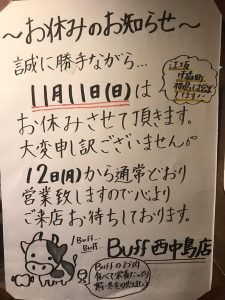 ～お休みのお知らせ～
誠に勝手ながら…
11月11日(日)は
お休みさせて頂きます。
大変申し訳ございません。
12日(月)から通常どおり
営業致しますので心より
ご来店お待ちしております。
Buff…
Buff…
Buff西中島店
Buffのお肉
食べて栄養たっぷり